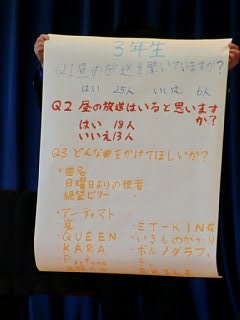 3年生
Q1 昼の放送を聞いていますか?
はい 25人 いいえ 6人
Q2 昼の放送はいると思いますか?
はい 18人
いいえ13人
Q3 どんな曲をかけてほしいか?
・曲名
日曜日よりの使者
絶望ビリー
・アーティスト
嵐 ・ET-KING
・QUEEN ・いきものがかり
・KARA ・ポルノグラフィ